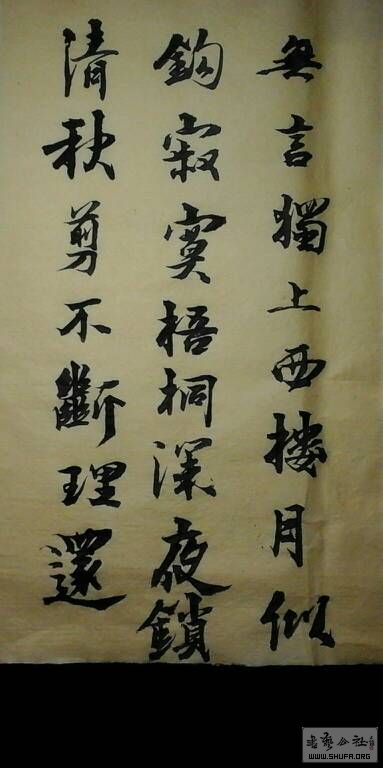 無言獨上西樓月似
鈎寂寞梧桐深夜鎖
清秋剪不斷理還
書藝公社
WWW.SHUFA.ORG